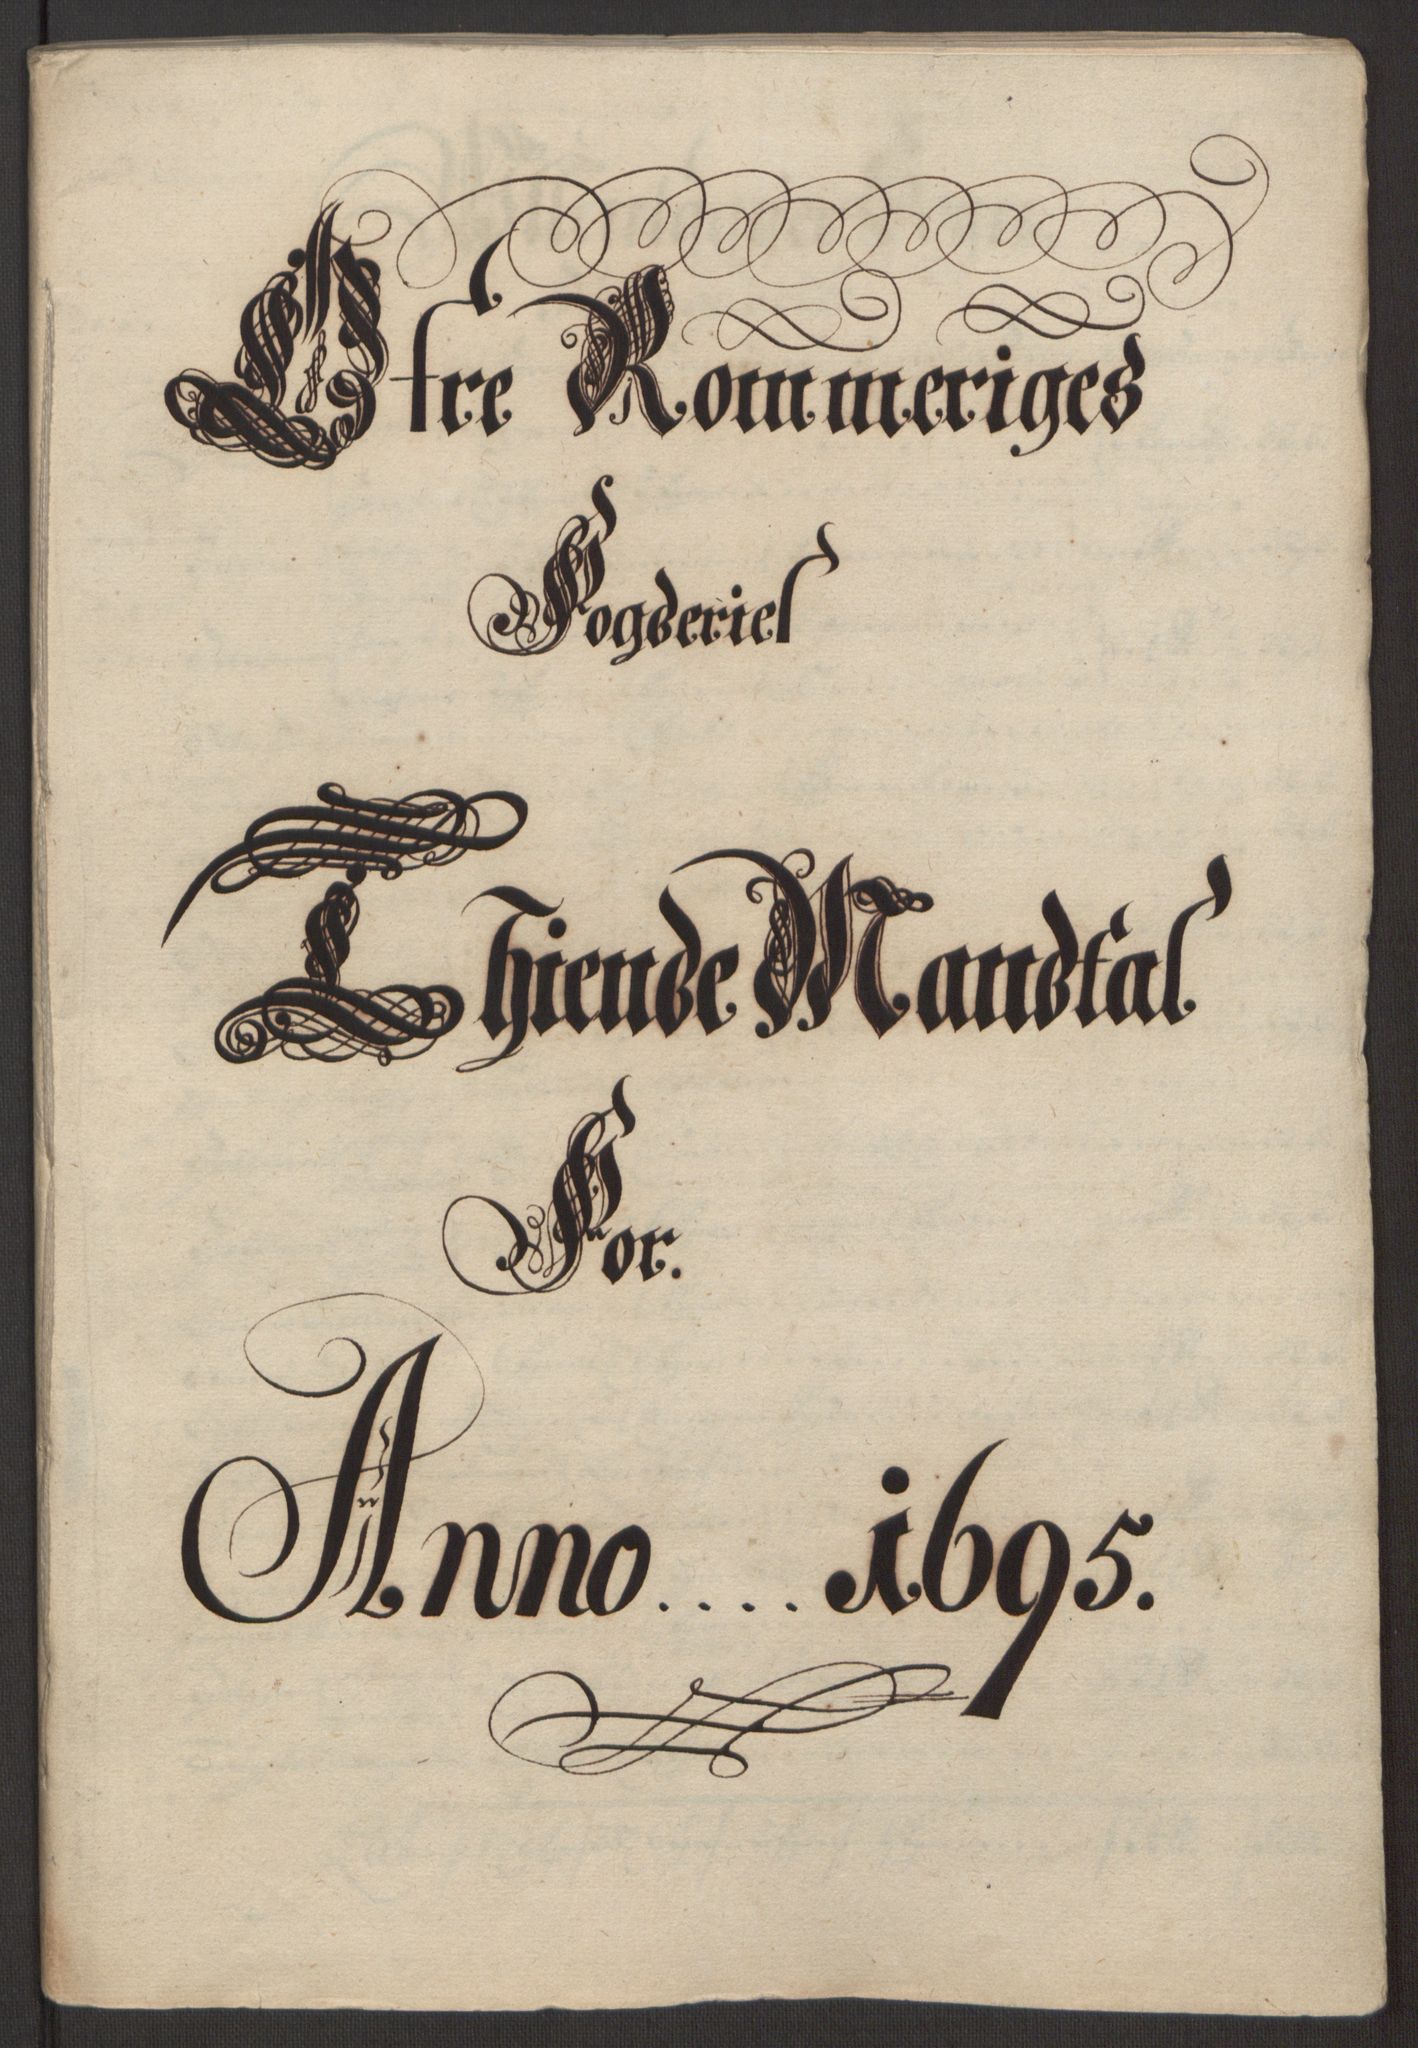 Øfre Rommeriges
Fogderie
Thiende Mandtal
For.
Anno .... 1695.